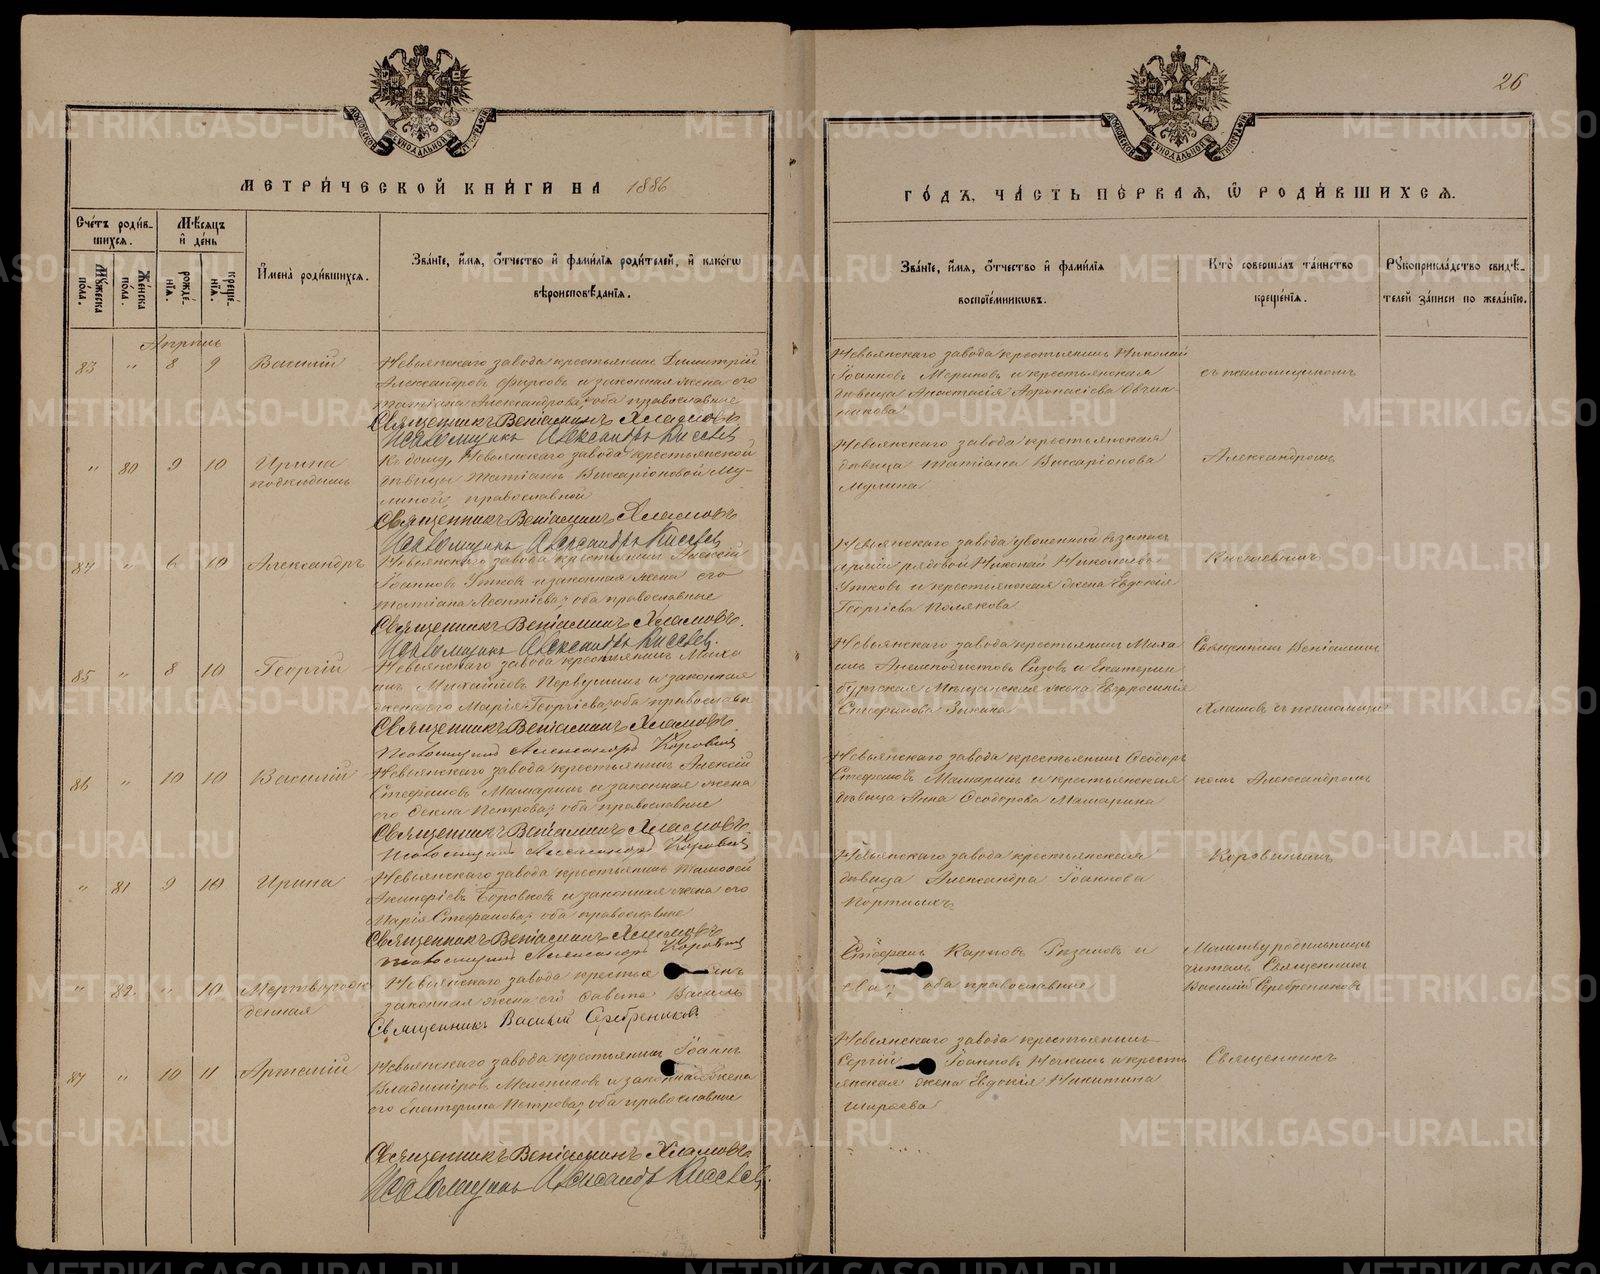 26
МЕТРИ́ЧЕСКОЙ КНИ́ГИ НА 1886
ГО́ДЪ, ЧА́СТЬ ПЕ́РВАЯ, Ѿ РОДИ́ВШИХСЯ.
Сче́тъ роди́вшихся.
Мѣ́сяцъ и҆ де́нь
И҆мена̀ роди́вшихся.
Зва́нїе, и҆́мя, ѻ҆́тчество и҆ фами́лїя роди́телей, и҆ како́гѡ
вѣроисповѣ́данїя.
Мꙋ́жеска по́ла.
Же́нска по́ла.
рожде́нїя.
креще́нїя.
Зва́нїе, и҆́мя, ѻ҆́тчество и҆ фами́лїя
воспрїе́мникѡвъ.
Кто̀ соверша́лъ та́инство
креще́нїя.
Рꙋкоприкла́дство свидѣ́-
телей за́писи по жела́нїю.
Апрѣль
83 " 8 9 Василій
Невьянскаго завода крестьянинъ Димитрій
Александровъ Фирсовъ и законная жена его
Татіана Александрова, оба православные
Священникъ Веніаминъ Хламовъ
Псаломщикъ Александръ Киселев
Невьянскаго завода крестьянинъ Николай
Іоанновъ Мериновъ и крестьянская
дѣвица Анастасія Афонасіева Овчин
никова
съ псаломщикомъ
" 80 9 10 Ирина
подкидышъ
Къ дому, Невьянскаго завода крестьянской
дѣвицы Татіаны Виссаріоновой Му-
линой, православной
Священникъ Веніаминъ Хламовъ
Псаломщикъ Александръ Киселев
Невьянскаго завода крестьянская
дѣвица Татіана Виссаріонова
Мулина
Александромъ
84 " 6 10 Александръ
Невьянскаго завода крестьянинъ Алексій
Іоанновъ Утковъ и законная жена его
Татіана Леонтіева, оба православные
Священникъ Веніаминъ Хламовъ.
Псаломщикъ Александръ Киселев.
Невьянскаго завода уволенный въ запасъ
арміи рядовой Николай Николаевъ
Утковъ и крестьянская жена Евдокія
Георгіева Полякова
Киселевымъ
85 " 8 10 Георгій
Невьянскаго завода крестьянинъ Миха
илъ Михайловъ Первушинъ и законная
жена его Марія Георгіева, оба православн
Священникъ Веніаминъ Хламовъ
Псаломщикъ Александръ Коровин
Невьянскаго завода крестьянинъ Миха
илъ Анемподистовъ Сизовъ и Екатерин
бургская Мѣщанская жена Евфросинія
Стефанова Зыкина
Священникъ Веніаминъ
Хламовъ съ псаломщи
86 " 10 10 Василій
Невьянскаго завода крестьянинъ Алексій
Стефановъ Мамаринъ и законная жена
его Ѳекла Петрова, оба православные
Священникъ Веніаминъ Хламовъ
Псаломщикъ Александръ Коровин
Невьянскаго завода крестьянинъ Ѳеодоръ
Стефановъ Мамаринъ и крестьянская
дѣвица Анна Ѳеодорова Мамарина
комъ Александромъ
" 81 9 10 Ирина
Невьянскаго завода крестьянинъ Тимоѳей
Боровковъ и законная жена его
Марія Стефанова, оба православные
Священникъ Веніаминъ Хламовъ
Псаломщикъ Александръ Коровин
Невьянскаго завода крестьянская
дѣвица Александра Іоаннова
Портныхъ
Коровинымъ
" 82. " 10 Мертворож
денная
Невьянскаго завода крестья нинъ
законная жена его Василь
Священникъ Василій Серебренников
Стефанъ Карповъ и
ева, оба православные
Молитву родильницы
читалъ Священникъ
Василій Серебренниковъ
87 " 10 11 Артемій
Невьянскаго завода крестьянинъ Іоаннъ
Владиміровъ Мельниковъ и законная жена
его Екатерина Петрова, оба православные
Священникъ Веніаминъ Хламовъ.
Псаломщикъ Александръ Киселев.
Невьянскаго завода крестьянинъ
Сергій Іоанновъ и кресть
янская жена Евдокія Никитина
Ширяева
Священникъ
METRIKI.GASO-URAL.RU